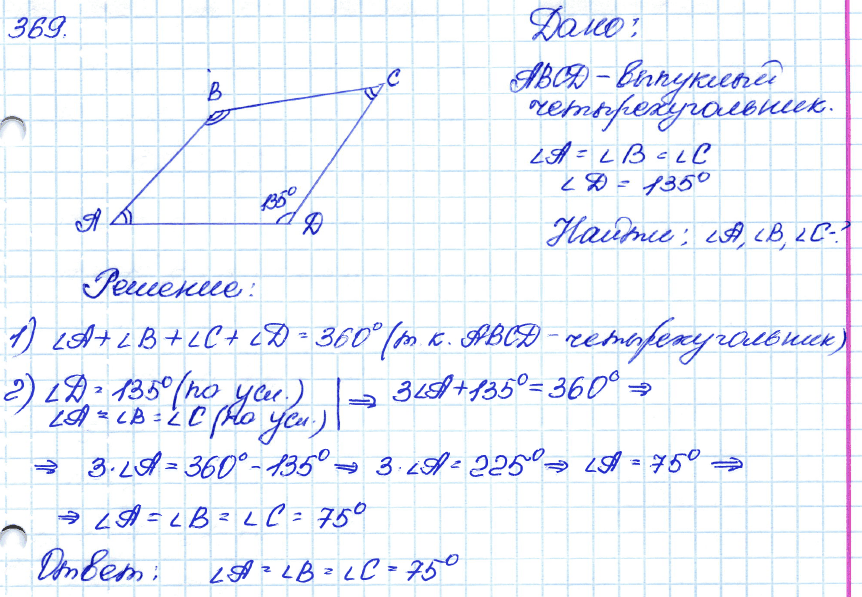 369.
Дано:
ABCD - выпуклый
четырехугольник.
∠A = ∠B = ∠C
∠D = 135°
Найти: ∠A, ∠B, ∠C - ?
B
C
A
135°
D
Решение:
1) ∠A + ∠B + ∠C + ∠D = 360° (т.к. ABCD - четырехугольник)
2) ∠D = 135° (по усл.)
∠A = ∠B = ∠C (по усл.) | ⇒ 3∠A + 135° = 360° ⇒
⇒ 3·∠A = 360° - 135° ⇒ 3·∠A = 225° ⇒ ∠A = 75° ⇒
⇒ ∠A = ∠B = ∠C = 75°
Ответ: ∠A = ∠B = ∠C = 75°